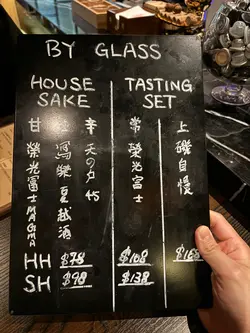 BY GLASS
HOUSE SAKE
TASTING SET
甘
辛
常
上
榮光冨士
夏越酒
天の戸 45
榮光冨士
磯自慢
HH $78 $108
SH $98 $138